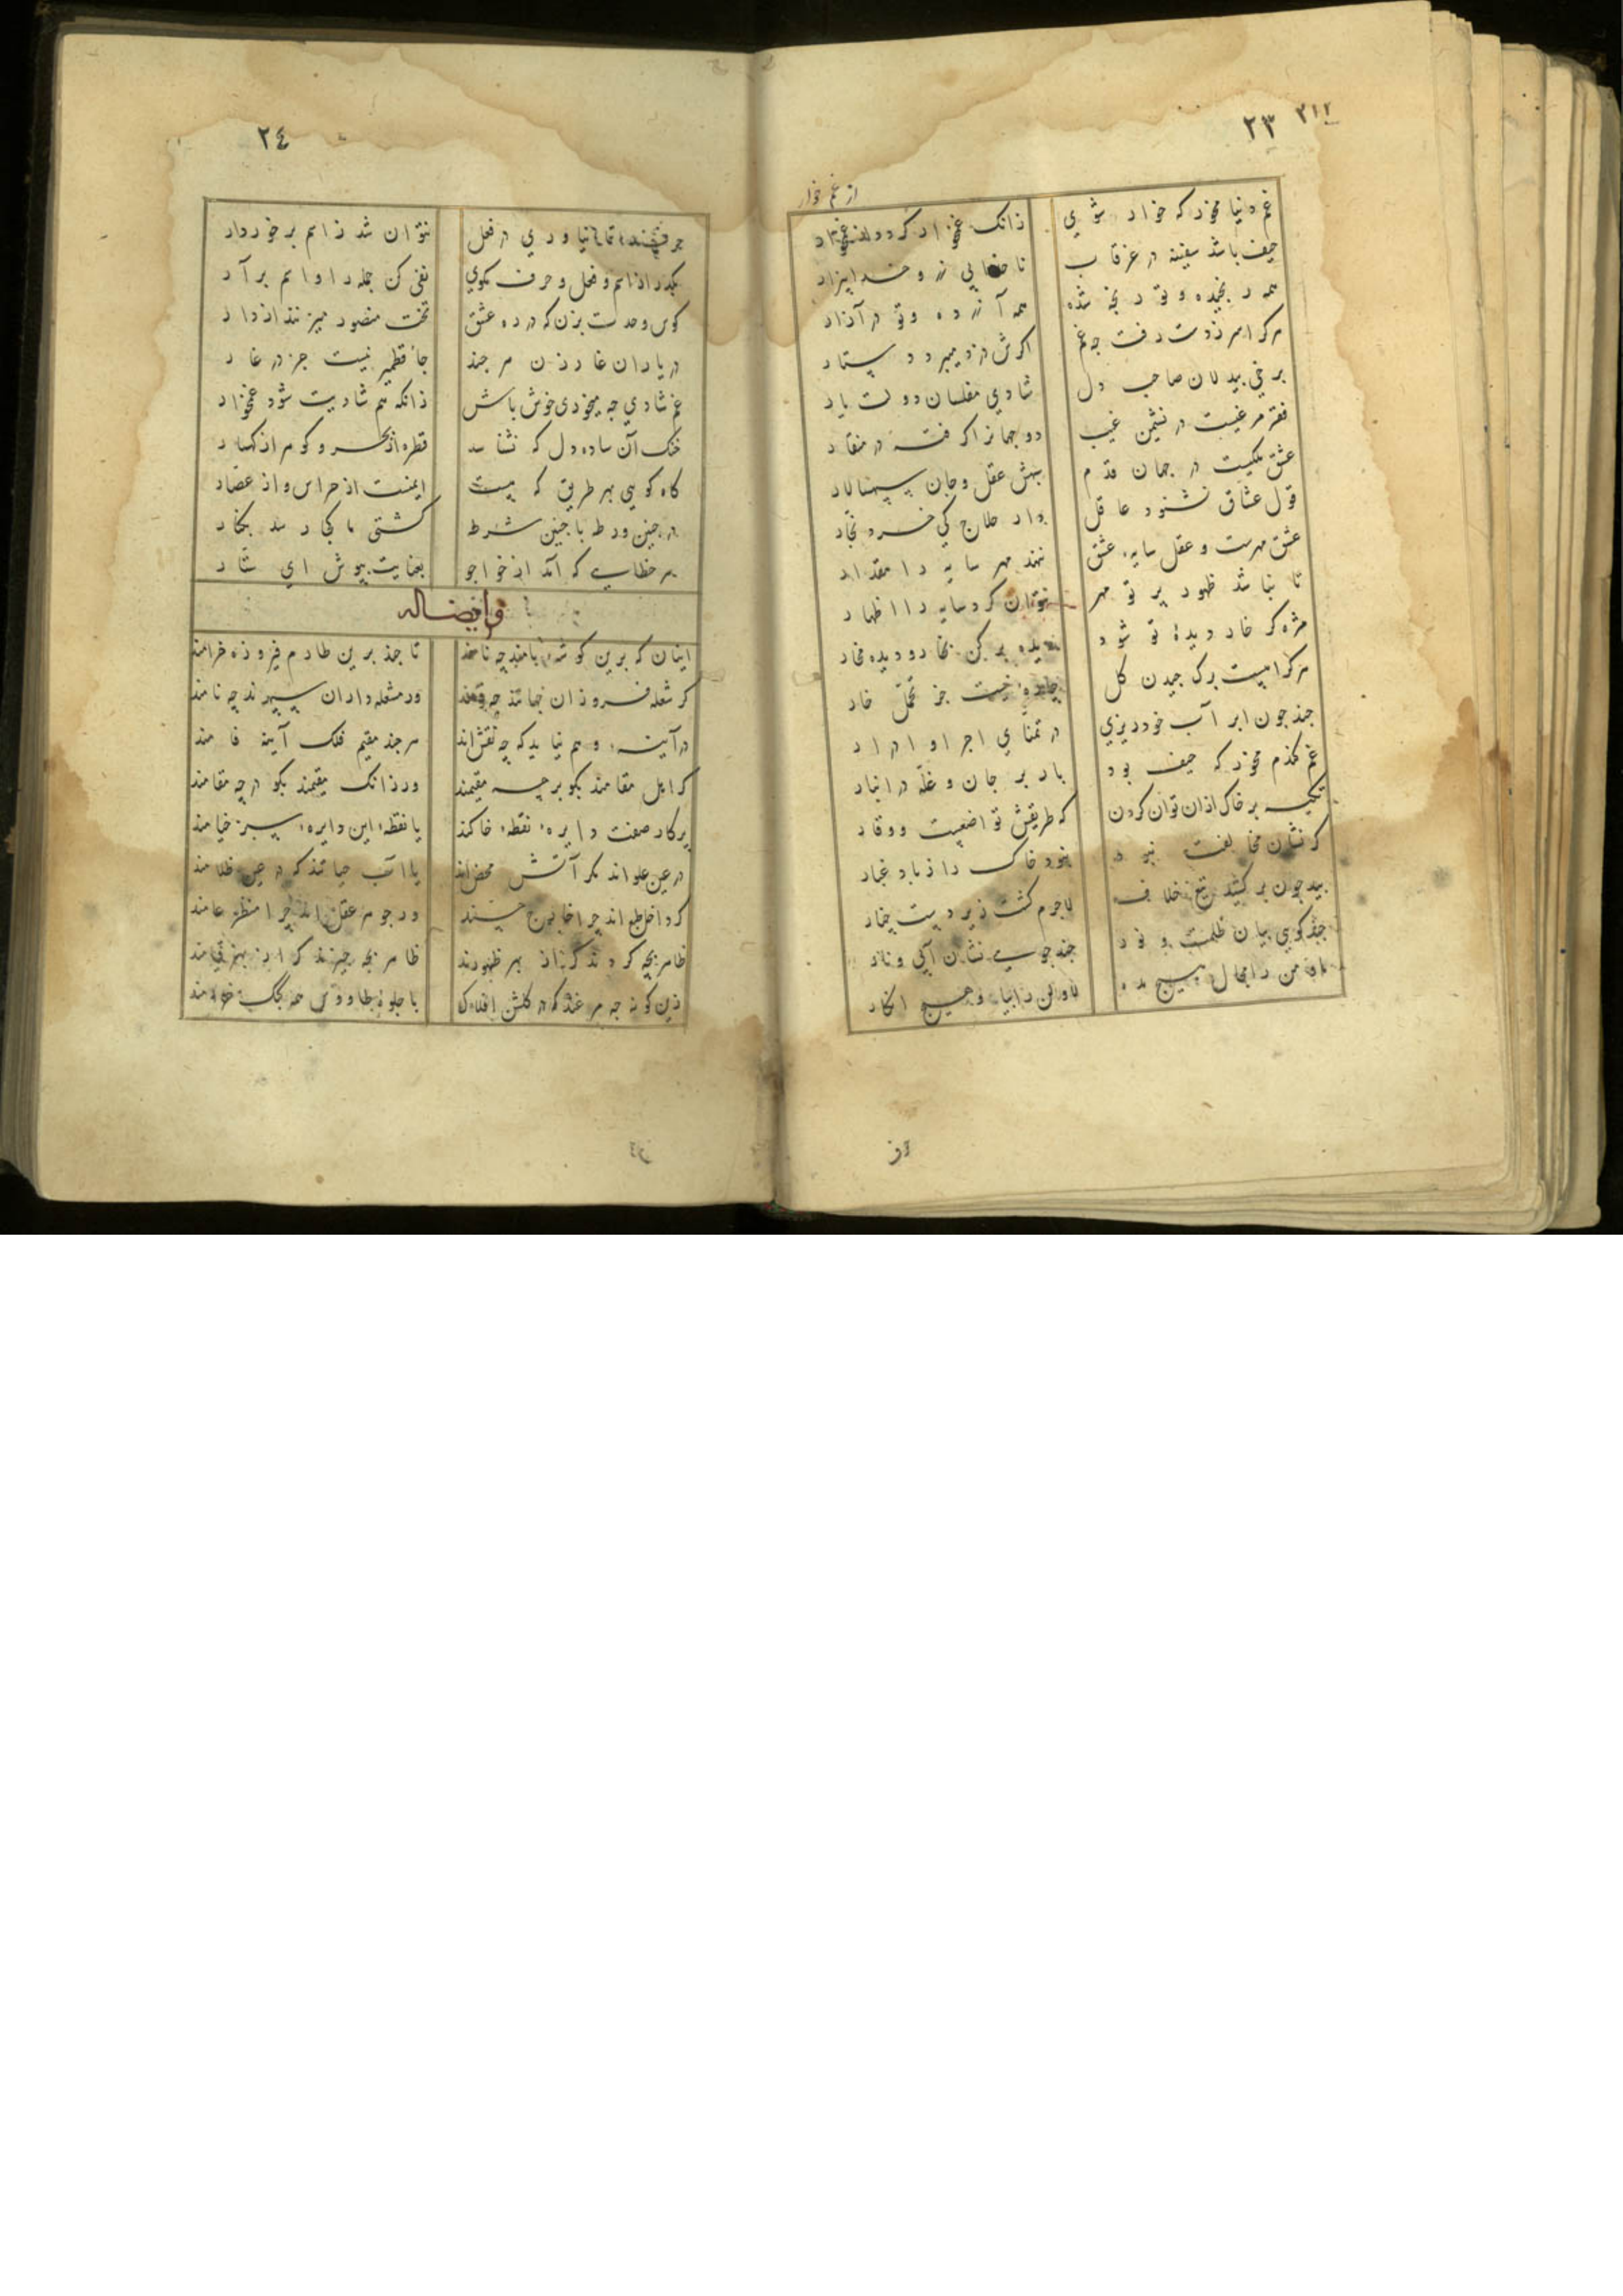 ٢٣
٣١٢
از غم خوار
غم دنیا مخور که خوار شوی
زانک غمخوار کردد
حیف باشد سفینه در غرقاب
همه رنجیده و تو رنجه شده
همه آزرده و تو در آزار
هرکرا سر ز دست رفت چه غم
اکرش دزد میبرد دستار
برخی بیدلان صاحب دل
شادی مفلسان دولت یار
فقر مرغیست در نشیمن غیب
دو جهانرا کرفته در منقار
عشق ملکیست در جهان قدم
قول عشاق نشنود عاقل
عشق مهرست و عقل سایه عشق
ننهد مهر سایه را مقدار
تا نباشد ظهور پرتو مهر
نتوان کرد سایه را اظهار
مژه کر خار دیدهٔ تو شود
دیده برکن بخار و دیده مخار
هرکرا نیست برک چیدن کل
چاره نیست جز تحمل خار
چند چون ابر آب خود ریزی
در تمنای اجرا و ادرار
غم کندم مخور که حیف بود
بار بر جان و غله در انبار
تکیه بر خاک ازان توان کردن
که طریقش تواضعست و وقار
کر نشان مخالفت نبود
نبود خاک را ز باد غبار
بید چون برکشید تیغ خلاف
لاجرم کشت زیر دست چنار
چند کویی بیان ظلمت و نور
چند جویی نشان آبی و نار
او من را مجال هیچ مده
از
٢٤
در فعل
نتوان شد ز اسم برخوردار
بکذر از اسم و فعل و حرف مکوی
نفی کن جمله را و اسم برآر
کوس وحدت بزن که در ره عشق
تخت منصور میزنند از دار
در یاران غار زن هر چند
جا قطمیر نیست جز در غار
غم شادی چه میخوری خوش باش
زانکه هم شادیت شود غمخوار
خنک آن ساده دل که نشناسد
قطره از بحر و کوهر از کهسار
کاه کوهی بهر طریق که هست
ایمنست از حراس و از عصار
در چنین ورطه با چنین شرط
کشتی ما کجا رسد بکنار
هر خطایی که آید از خواجو
بعنایت بپوش ای ستار
و ایضاً له
اینان که برین کوشه بامند چه نامند
تا چند برین طارم فیروزه خرامند
کر شعله فروزان جهانند چه
ور مشعله داران سپهرند چه نامند
در آینه وهم نیاید که چه نقش‌اند
هرچند مقیم فلک آینه فامند
کر اهل مقامند بکو بر چه مقیمند
ور زانک مقیمند بکو در چه مقامند
پرکار صفت دایره نقطه خاکند
یا نقطه این دایره سبز خیامند
در عین علواند مکر آتش محض‌اند
یا آب حیاتند که در عین ظلامند
کر داخل طبع اند چرا خارج جنسند
ور جوهر عقل اند چرا منظر عامند
ظاهر بچه کردند کر از بهر ظهورند
زین کونه چه مرغند که در کلشن افلاک